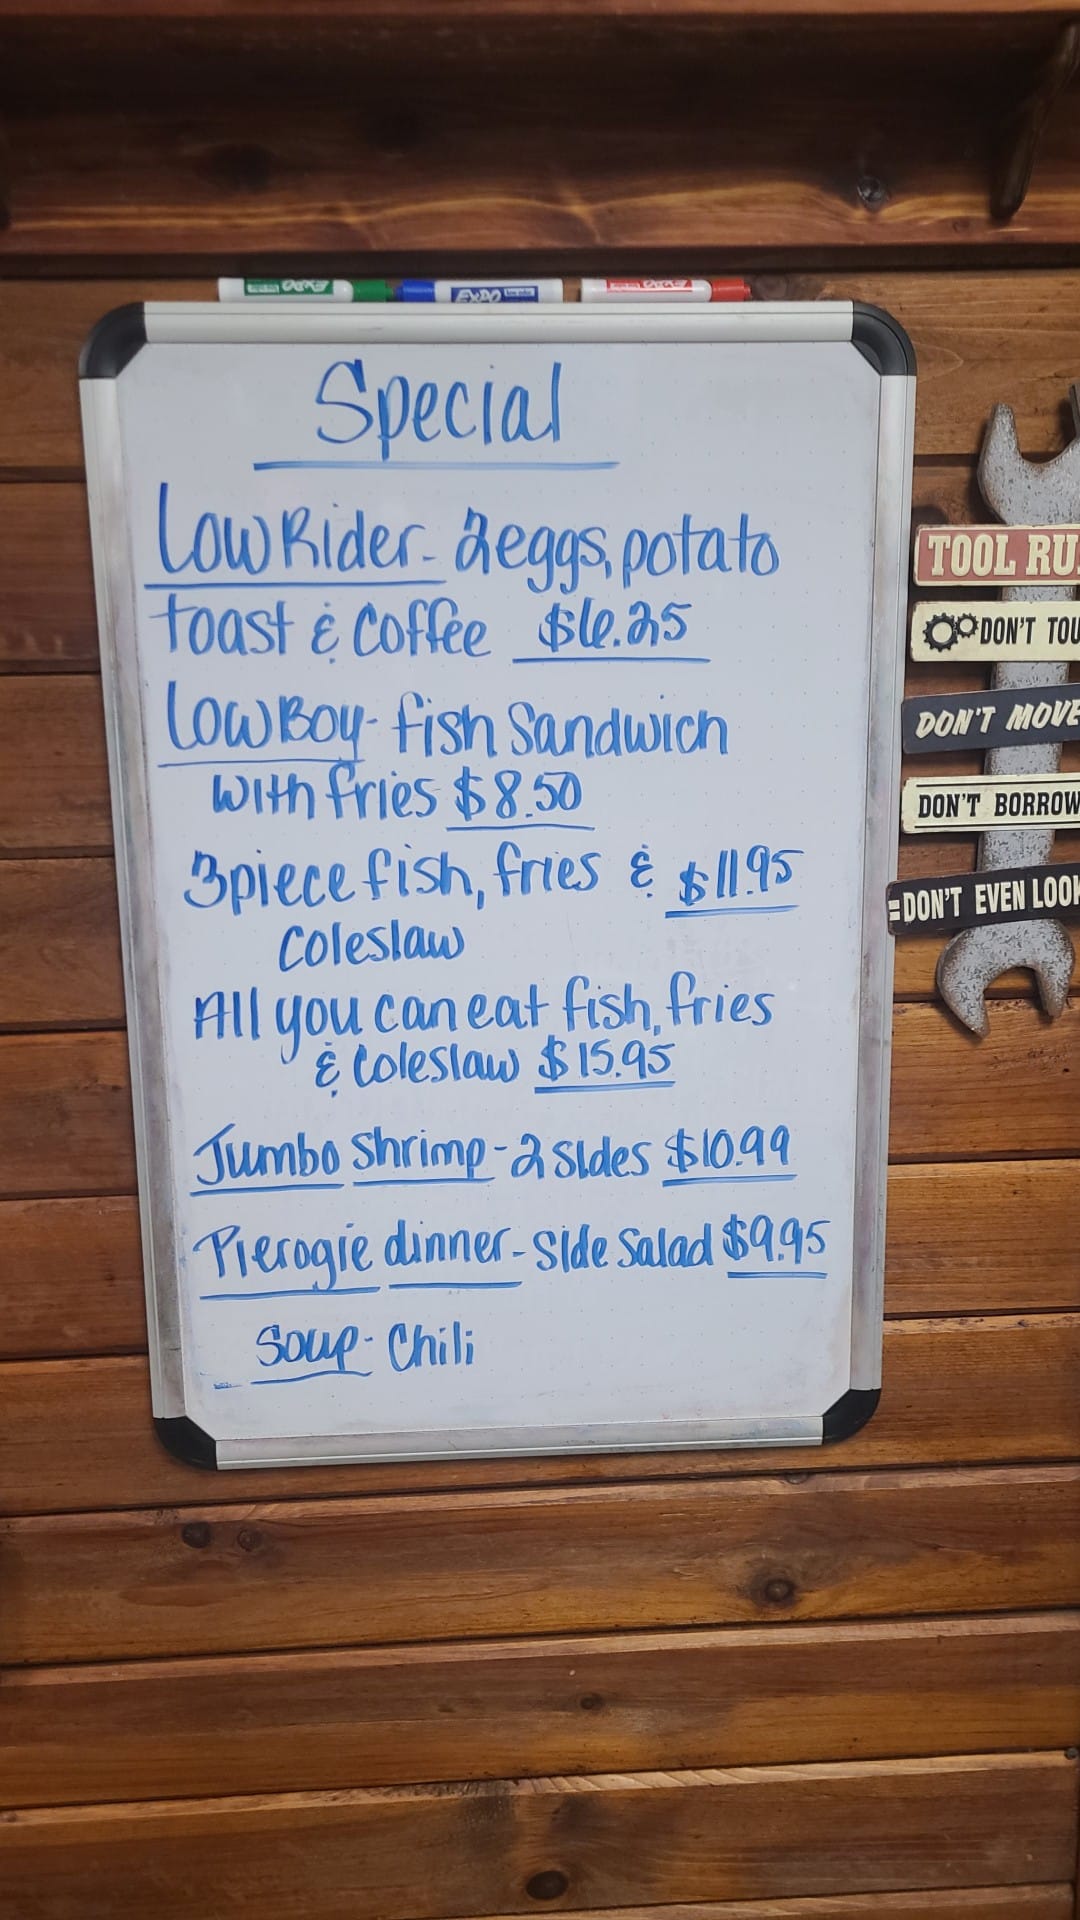 EXPO
EXPO
EXPO
Special
Low Rider - 2 eggs, potato
toast & Coffee $6.25
Low Boy - fish Sandwich
with fries $8.50
3 piece fish, fries & $11.95
Coleslaw
All you can eat fish, fries
& Coleslaw $15.95
Jumbo Shrimp - 2 sides $10.99
Pierogie dinner - side salad $9.95
Soup - Chili
TOOL RU
DON'T TOU
DON'T MOVE
DON'T BORROW
DON'T EVEN LOOK